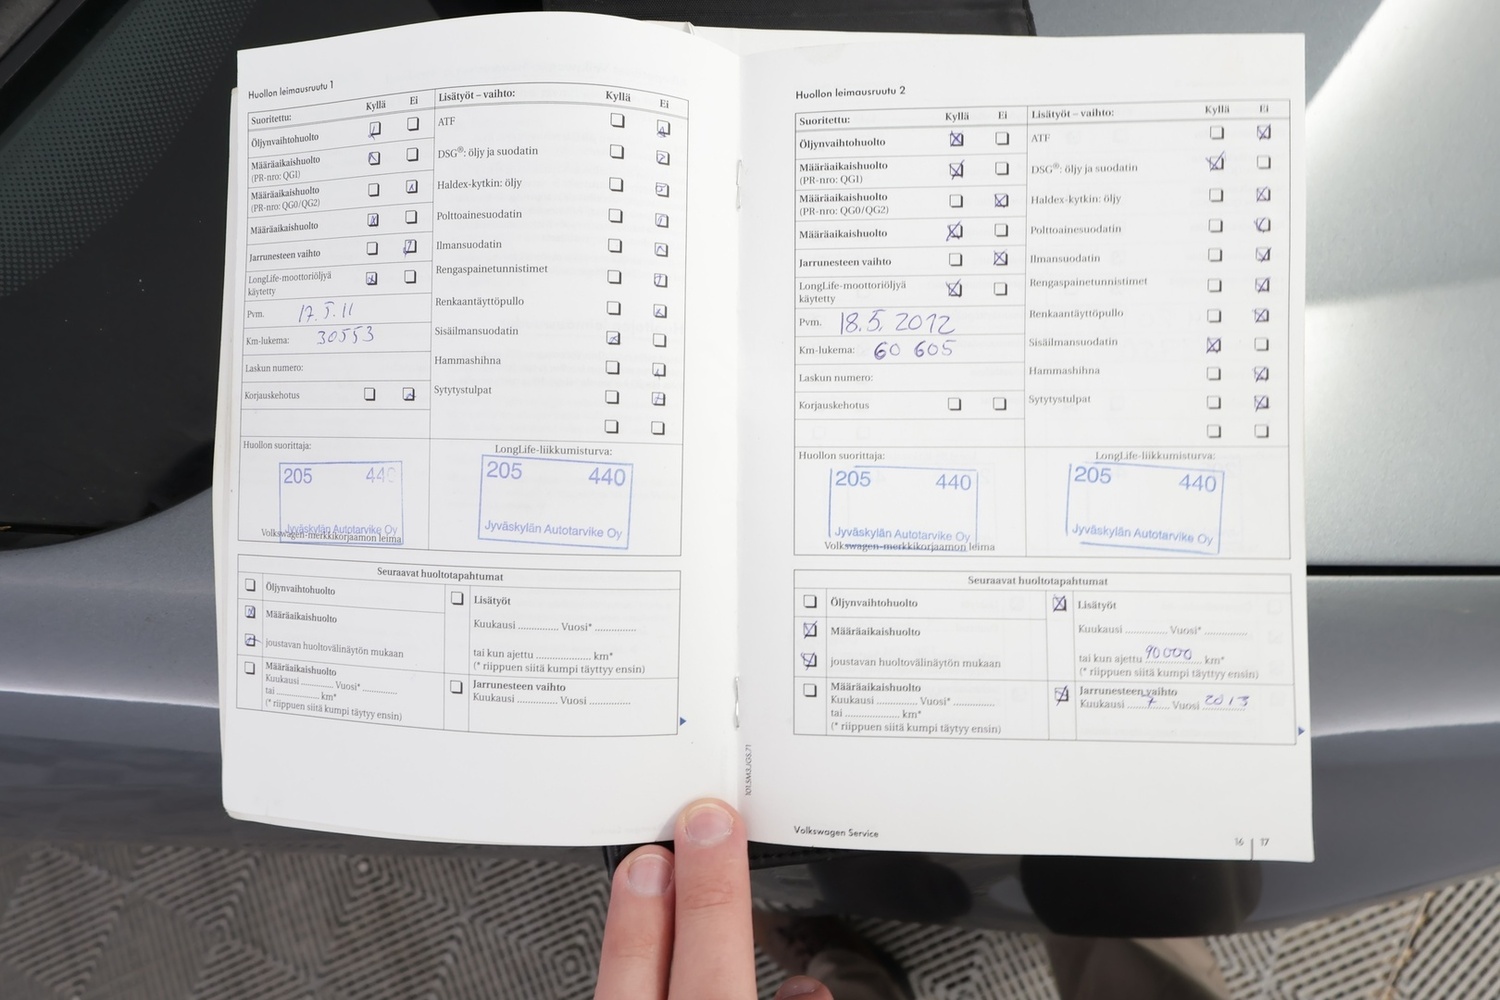 Huollon leimausruutu 1
Suoritettu: Kyllä Ei
Öljynvaihtohuolto
Määräaikaishuolto
(PR-nro: QG1)
Määräaikaishuolto
(PR-nro: QG0/QG2)
Määräaikaishuolto
Jarrunesteen vaihto
LongLife-moottoriöljyä
käytetty
Pvm. 17.5.11
Km-lukema: 30553
Laskun numero:
Korjauskehotus
Lisätyöt – vaihto: Kyllä Ei
ATF
DSG®: öljy ja suodatin
Haldex-kytkin: öljy
Polttoainesuodatin
Ilmansuodatin
Rengaspainetunnistimet
Renkaantäyttöpullo
Sisäilmansuodatin
Hammashihna
Sytytystulpat
Huollon suorittaja:
205 440
Jyväskylän Autotarvike Oy
Volkswagen-merkkikorjaamon leima
LongLife-liikkumisturva:
205 440
Jyväskylän Autotarvike Oy
Seuraavat huoltotapahtumat
Öljynvaihtohuolto
Määräaikaishuolto
joustavan huoltovälinäytön mukaan
Määräaikaishuolto
Kuukausi ............ Vuosi* ............
tai ............ km*
(* riippuen siitä kumpi täytyy ensin)
Lisätyöt
Kuukausi ............ Vuosi* ............
tai kun ajettu ............ km*
(* riippuen siitä kumpi täyttyy ensin)
Jarrunesteen vaihto
Kuukausi ............ Vuosi ............
Huollon leimausruutu 2
Suoritettu: Kyllä Ei
Öljynvaihtohuolto
Määräaikaishuolto
(PR-nro: QG1)
Määräaikaishuolto
(PR-nro: QG0/QG2)
Määräaikaishuolto
Jarrunesteen vaihto
LongLife-moottoriöljyä
käytetty
Pvm. 18.5.2012
Km-lukema: 60 605
Laskun numero:
Korjauskehotus
Lisätyöt – vaihto: Kyllä Ei
ATF
DSG®: öljy ja suodatin
Haldex-kytkin: öljy
Polttoainesuodatin
Ilmansuodatin
Rengaspainetunnistimet
Renkaantäyttöpullo
Sisäilmansuodatin
Hammashihna
Sytytystulpat
Huollon suorittaja:
205 440
Jyväskylän Autotarvike Oy
Volkswagen-merkkikorjaamon leima
LongLife-liikkumisturva:
205 440
Jyväskylän Autotarvike Oy
Seuraavat huoltotapahtumat
Öljynvaihtohuolto
Määräaikaishuolto
joustavan huoltovälinäytön mukaan
Määräaikaishuolto
Kuukausi ............ Vuosi* ............
tai ............ km*
(* riippuen siitä kumpi täytyy ensin)
Lisätyöt
Kuukausi ............ Vuosi* ............
tai kun ajettu 90 000 km*
(* riippuen siitä kumpi täytyy ensin)
Jarrunesteen vaihto
Kuukausi 7 Vuosi 2013
Volkswagen Service
16 | 17